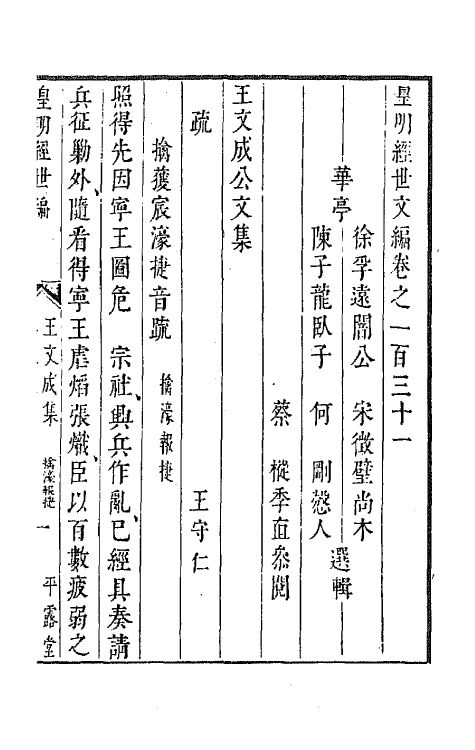 皇明經世文編卷之一百三十一
徐孚遠闇公　宋徵璧尚木
華亭　選輯
陳子龍臥子　何　剛愨人
蔡　樅季直叅閱
王文成公文集
疏　王守仁
擒獲宸濠捷音疏　擒濠報捷
照得先因寧王圖危　宗社、興兵作亂、已經具奏請
兵征勦外、隨看得寧王虐熖張熾、臣以百數疲弱之
皇明經世編　王文成集　擒濠報捷　一　平露堂